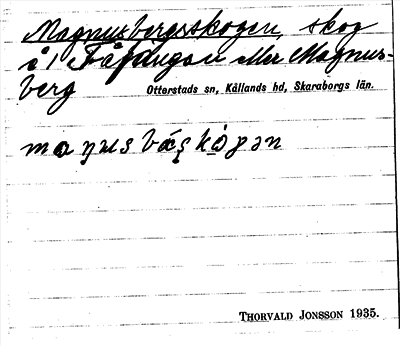 Magnusbergsskogen, skog
å 1 Fåfängan eller Magnus-
berg
Otterstads sn, Kållands hd, Skaraborgs län.
maŋnsbæ̀ʂkógən
THORVALD JONSSON 1935.